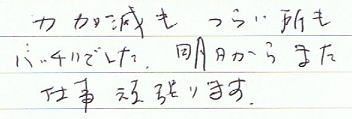 力加減も つらい所も
バッチリでした。明日からまた
仕事頑張ります。